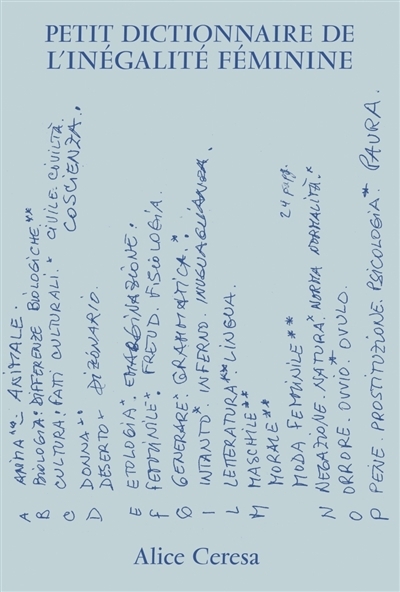 PETIT DICTIONNAIRE DE
L'INÉGALITÉ FÉMININE
A ANIMA** ANIMALE.
B BIOLOGIA* DIFFERENZE BIOLOGICHE.**
C CULTURA* FATTI CULTURALI.* CIVILE. CIVILTÀ. COSCIENZA.
D DONNA** DIZIONARIO.
DESERTO*
E ETOLOGIA* EMARGINAZIONE.
F FEMMINILE* FREUD. FISIOLOGIA.
G GENERARE* GRAMMATICA.*
I INTANTO* INFERNO. INUGUAGLIANZA.
L LETTERATURA** LINGUA.
M MASCHILE**
MORALE**
MODA FEMMINILE** 24
N NEGAZIONE. NATURA* NORMA NORMALITÀ.*
O ORRORE. OVVIO. OVULO.
P PENE. PROSTITUZIONE. PSICOLOGIA* PAURA.
Alice Ceresa